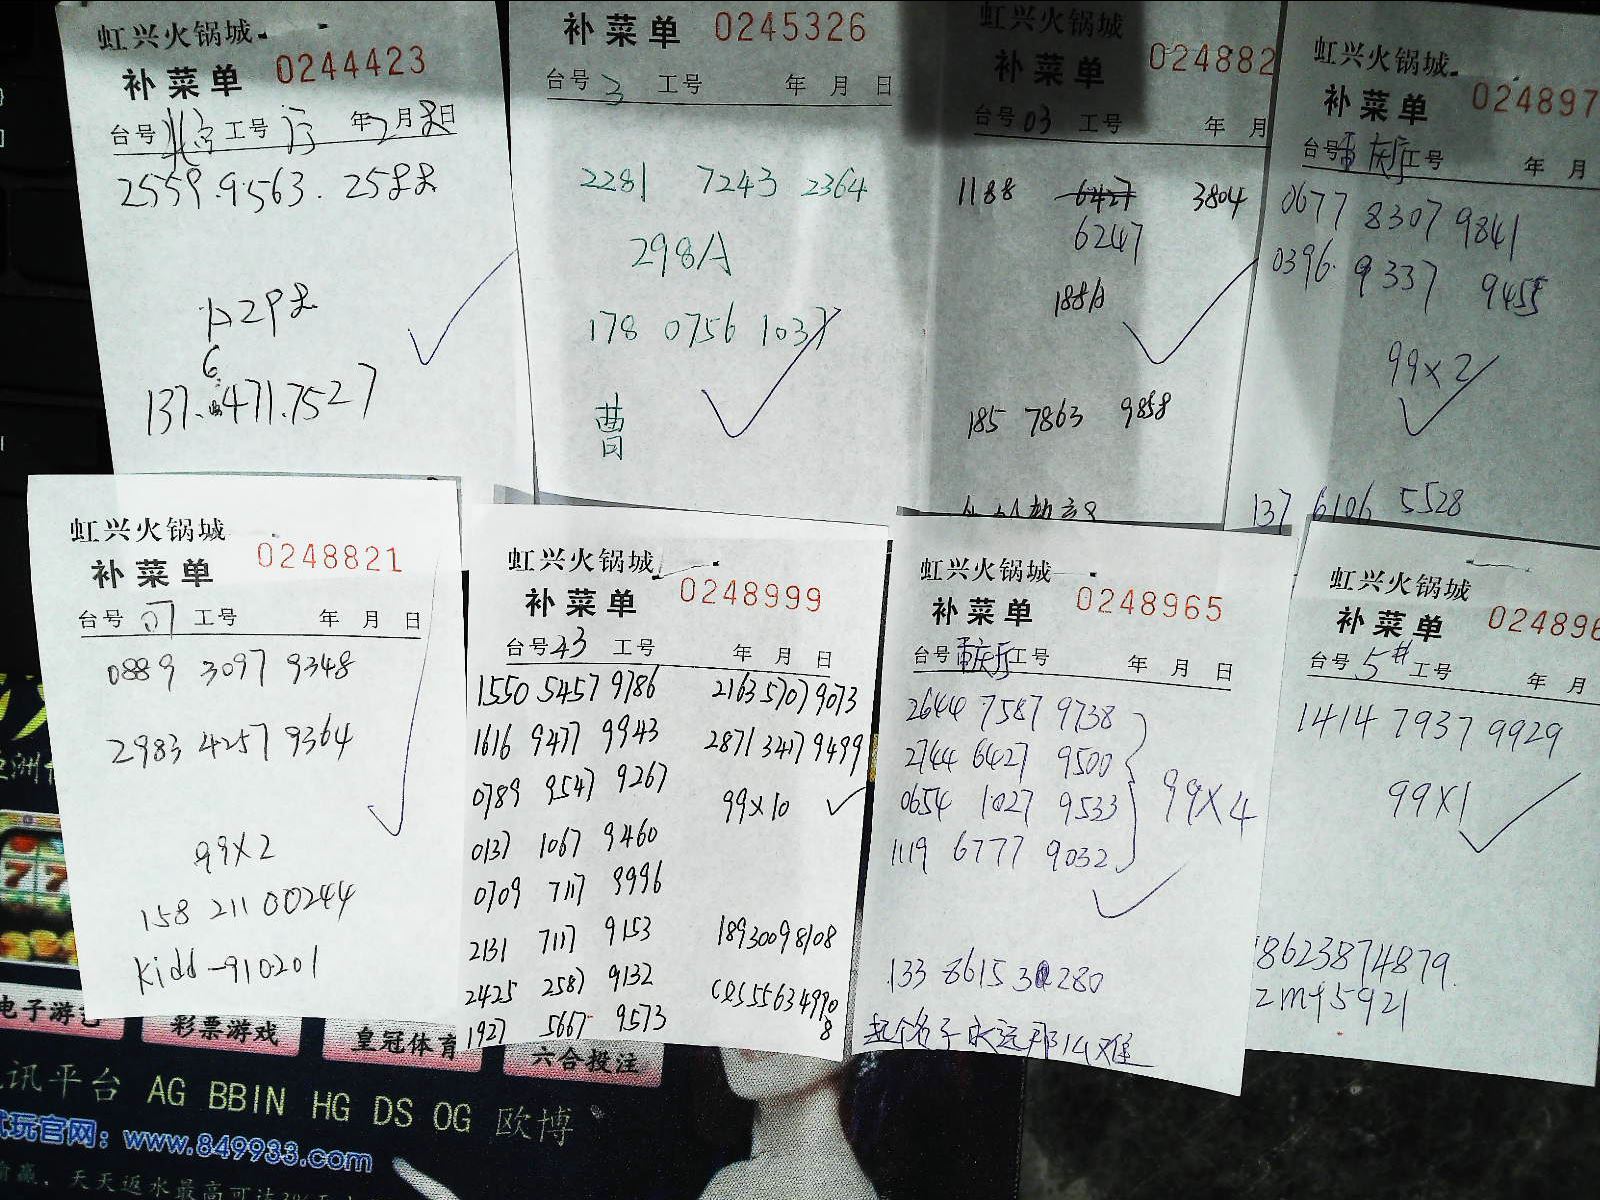 虹兴火锅城
补菜单 0244423
台号 北京 工号 厅 年 月 日
2559.9563.
137. 471.7527
6
补菜单 0245326
台号 3 工号 年 月 日
2281 7243 2364
298/A
178 0756 1037
曹
虹兴火锅城
补菜单 024882
台号 03 工号 年 月
1188 6427 3804
6247
188/A
185 7863 9858
虹兴火锅城
补菜单 024897
台号 重庆厅 工号 年 月
0677 8307 9841
0396. 9337 9455
99x2
137 6106 5528
虹兴火锅城
补菜单 0248821
台号 工号 年 月 日
0889 3097 9348
2983 4257 9364
99X2
158 2110 0244
kidd-910201
虹兴火锅城
补菜单 0248999
台号 23 工号 年 月 日
1550 5457 9786 2163 5707 9073
1616 9477 9943 2871 3417 9499
0789 9547 9267
99x10
0137 1067 9460
0709 7117 9996
2131 7117 9153 18930098108
2425 2587 9132
1927 5667 9573
8
虹兴火锅城
补菜单 0248965
台号 重庆厅 工号 年 月 日
2644 7587 9738
2744 6427 9500
0654 1027 9533 99X4
1119 6777 9032
133 8615 3 280
起个名子永远那么难
虹兴火锅城
补菜单 024896
台号 5# 工号 年 月
1414 7937 9929
99X1
18623874879.
zmt5921
电子游艺 彩票游戏 皇冠体育 六合投注
讯平台 AG BBIN HG DS OG 欧博
试玩官网：www.849933.com
天天返水最高可达